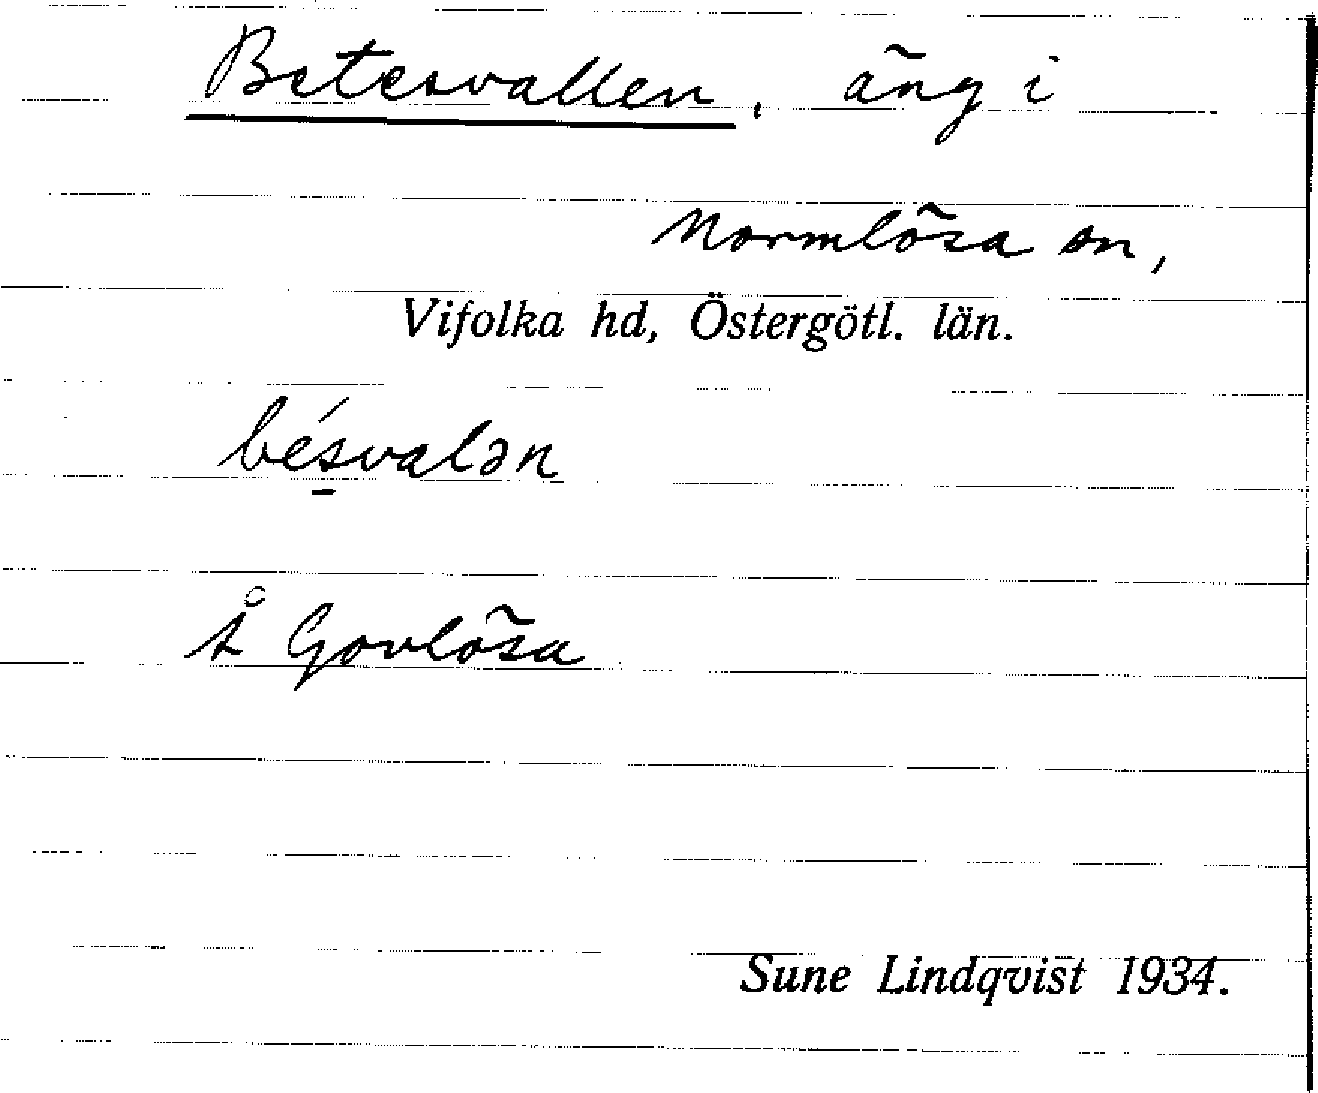 Betesvallen, äng i
Normlösa sn,
Vifolka hd, Östergötl. län.
bésvalən
Å Govlösa
Sune Lindqvist 1934.